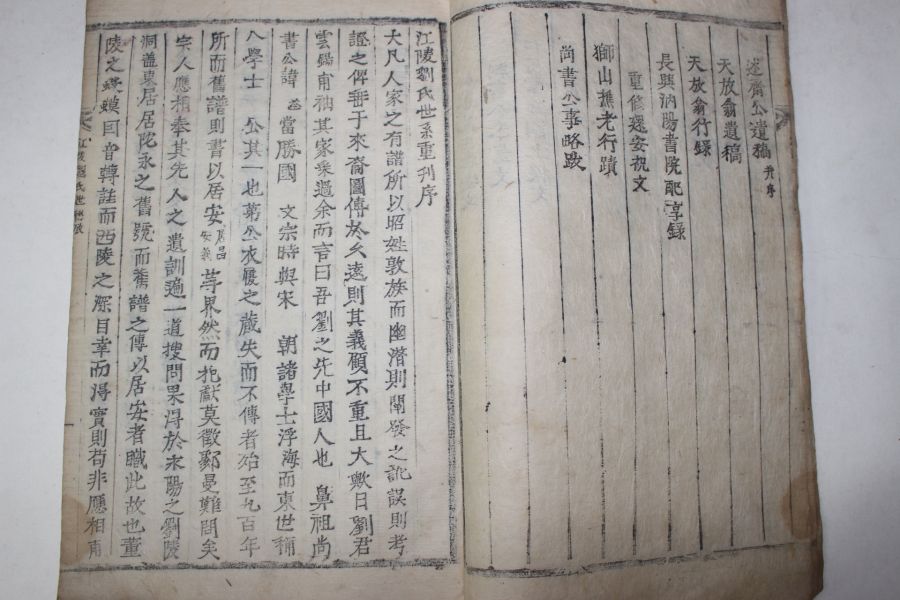 述齋公遺稿 并序
天放翁遺稿
天放翁行錄
長興汭陽書院配享錄
重修還安祝文
獅山樵老行蹟
尙書公事略跋
江陵劉氏世系重刊序
大凡人家之有譜所以昭姓敦族而幽潛則闡發之訛誤則考
證之俾垂于來裔圖傳於久遠則其義顧不重且大歟日劉君
雲錫甫袖其家乘過余而言曰吾劉之先中國人也 鼻祖尙
書公諱 荃 當勝國 文宗時與宋 朝諸學士浮海而東世稱
八學士 公其一也第公衣履之藏失而不傳者殆至九百年
所而舊譜則書以居安 居昌 安義 等界然而杞獻莫徵鄹曼難問矣
宗人應相奉其先人之遺訓遍一道搜問果得於永陽之劉陵
洞盖東居居陀永之舊號而舊譜之傳以居安者職此故也董
陵之蝦蟆回音轉註而西陵之深目幸而得實則苟非應相甫
江陵劉氏世